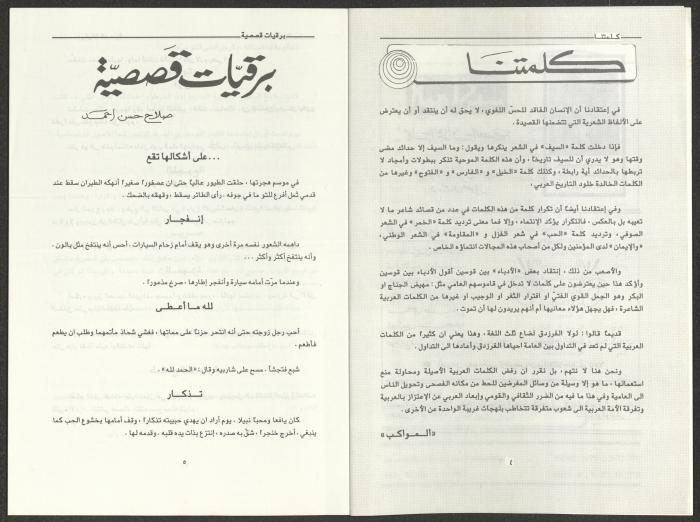 كلمتنا
كلمتنا
في إعتقادنا أن الإنسان الفاقد للحسّ اللغوي، لا يحق له أن ينتقد أو أن يعترض
على الألفاظ الشعرية التي تتضمنها القصيدة.
فإذا دخلت كلمة «السيف» في الشعر ينكرها ويقول: وما السيف إلا حدائد مضى
وقتها وهو لا يدري أن للسيف تاريخاً، وأن هذه الكلمة الموحية تذكر ببطولات وأمجاد لا
تربطها بالحدائد أية رابطة، وكذلك كلمة «الخيل» و «الفارس» و «الفتوح» وغيرها من
الكلمات الخالدة خلود التاريخ العربي.
وفي إعتقادنا أيضاً أن تكرار كلمة من هذه الكلمات في عدد من قصائد شاعر ما لا
تعيبه بل بالعكس، فالتكرار يؤكد الإنتماء، وإلا فما معنى ترديد كلمة «الخمر» في الشعر
الصوفي، وترديد كلمة «الحب» في شعر الغزل و «المقاومة» في الشعر الوطني،
«والإيمان» لدى المؤمنين ولكل من أصحاب هذه المجالات انتماؤه الخاص.
والأصعب من ذلك، إنتقاد بعض «الأدباء» بين قوسين أقول الأدباء بين قوسين
وأؤكد هذا حين يعترضون على كلمات لا تدخل في قاموسهم العامي مثل: مهيض الجناح او
البكر وهو الجمل القوي الفتيّ او افترار الثغر او الوجيب او غيرها من الكلمات العربية
الشاعرة، فهل يجهل هؤلاء معانيها أم أنهم يريدون لها أن تموت.
قديماً قالوا: لولا الفرزدق لضاع ثلث اللغة، وهذا يعني ان كثيراً من الكلمات
العربية التي لم تعد في التداول بين العامة احياها الفرزدق وأعادها الى التداول.
ونحن هنا لا نتهم، بل نقرر أن رفض الكلمات العربية الأصيلة ومحاولة منع
استعمالها، ما هو إلا وسيلة من وسائل المغرضين للحط من مكانه الفصحى وتحويل الناس
الى العامية وفي هذا ما فيه من الضرر الثقافي والقومي وإبعاد العربي عن الإعتزاز بالعربية
وتفرقة الأمة العربية الى شعوب متفرقة تتخاطب بلهجات غريبة الواحدة عن الأخرى.
«المواكب»
٤
برقيات قصصية
برقيّات قصَصيّة
صلاح حسن احمد
...على أشكالها تقع
في موسم هجرتها، حلقت الطيور عالياً حتى ان عصفوراً صغيراً أنهكه الطيران سقط عند
قدمي ثمل أفرغ للتو ما في جوفه. رأى الطائر يسقط، وقهقه بالضحك.
إنفجار
داهمه الشعور نفسه مرة أخرى وهو يقف أمام زحام السيارات. أحس أنه ينتفخ مثل بالون.
وأنه ينتفخ أكثر وأكثر...
وعندما مرّت أمامه سيارة وأنفجر إطارها، صرخ مذعوراً.
لله ما أعطى
أحب رجل زوجته حتى أنه انتحر حزناً على مماتها، فغشي شحاذ مأتمهما وطلب ان يطعم
فأطعم.
شبع فتجشأ. مسح على شاربيه وقال: «الحمد لله».
تذكار
كان يافعا ومحباً نبيلا. يوم أراد ان يهدي حبيبته تذكاراً، وقف أمامها بخشوع الحب كما
ينبغي، أخرج خنجراً، شقّ به صدره، إنتزع بذات يده قلبه. وقدمه لها.
٥